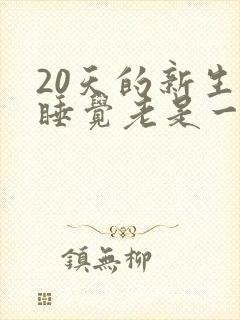 20天的新生
睡覺老是一
鎮無柳